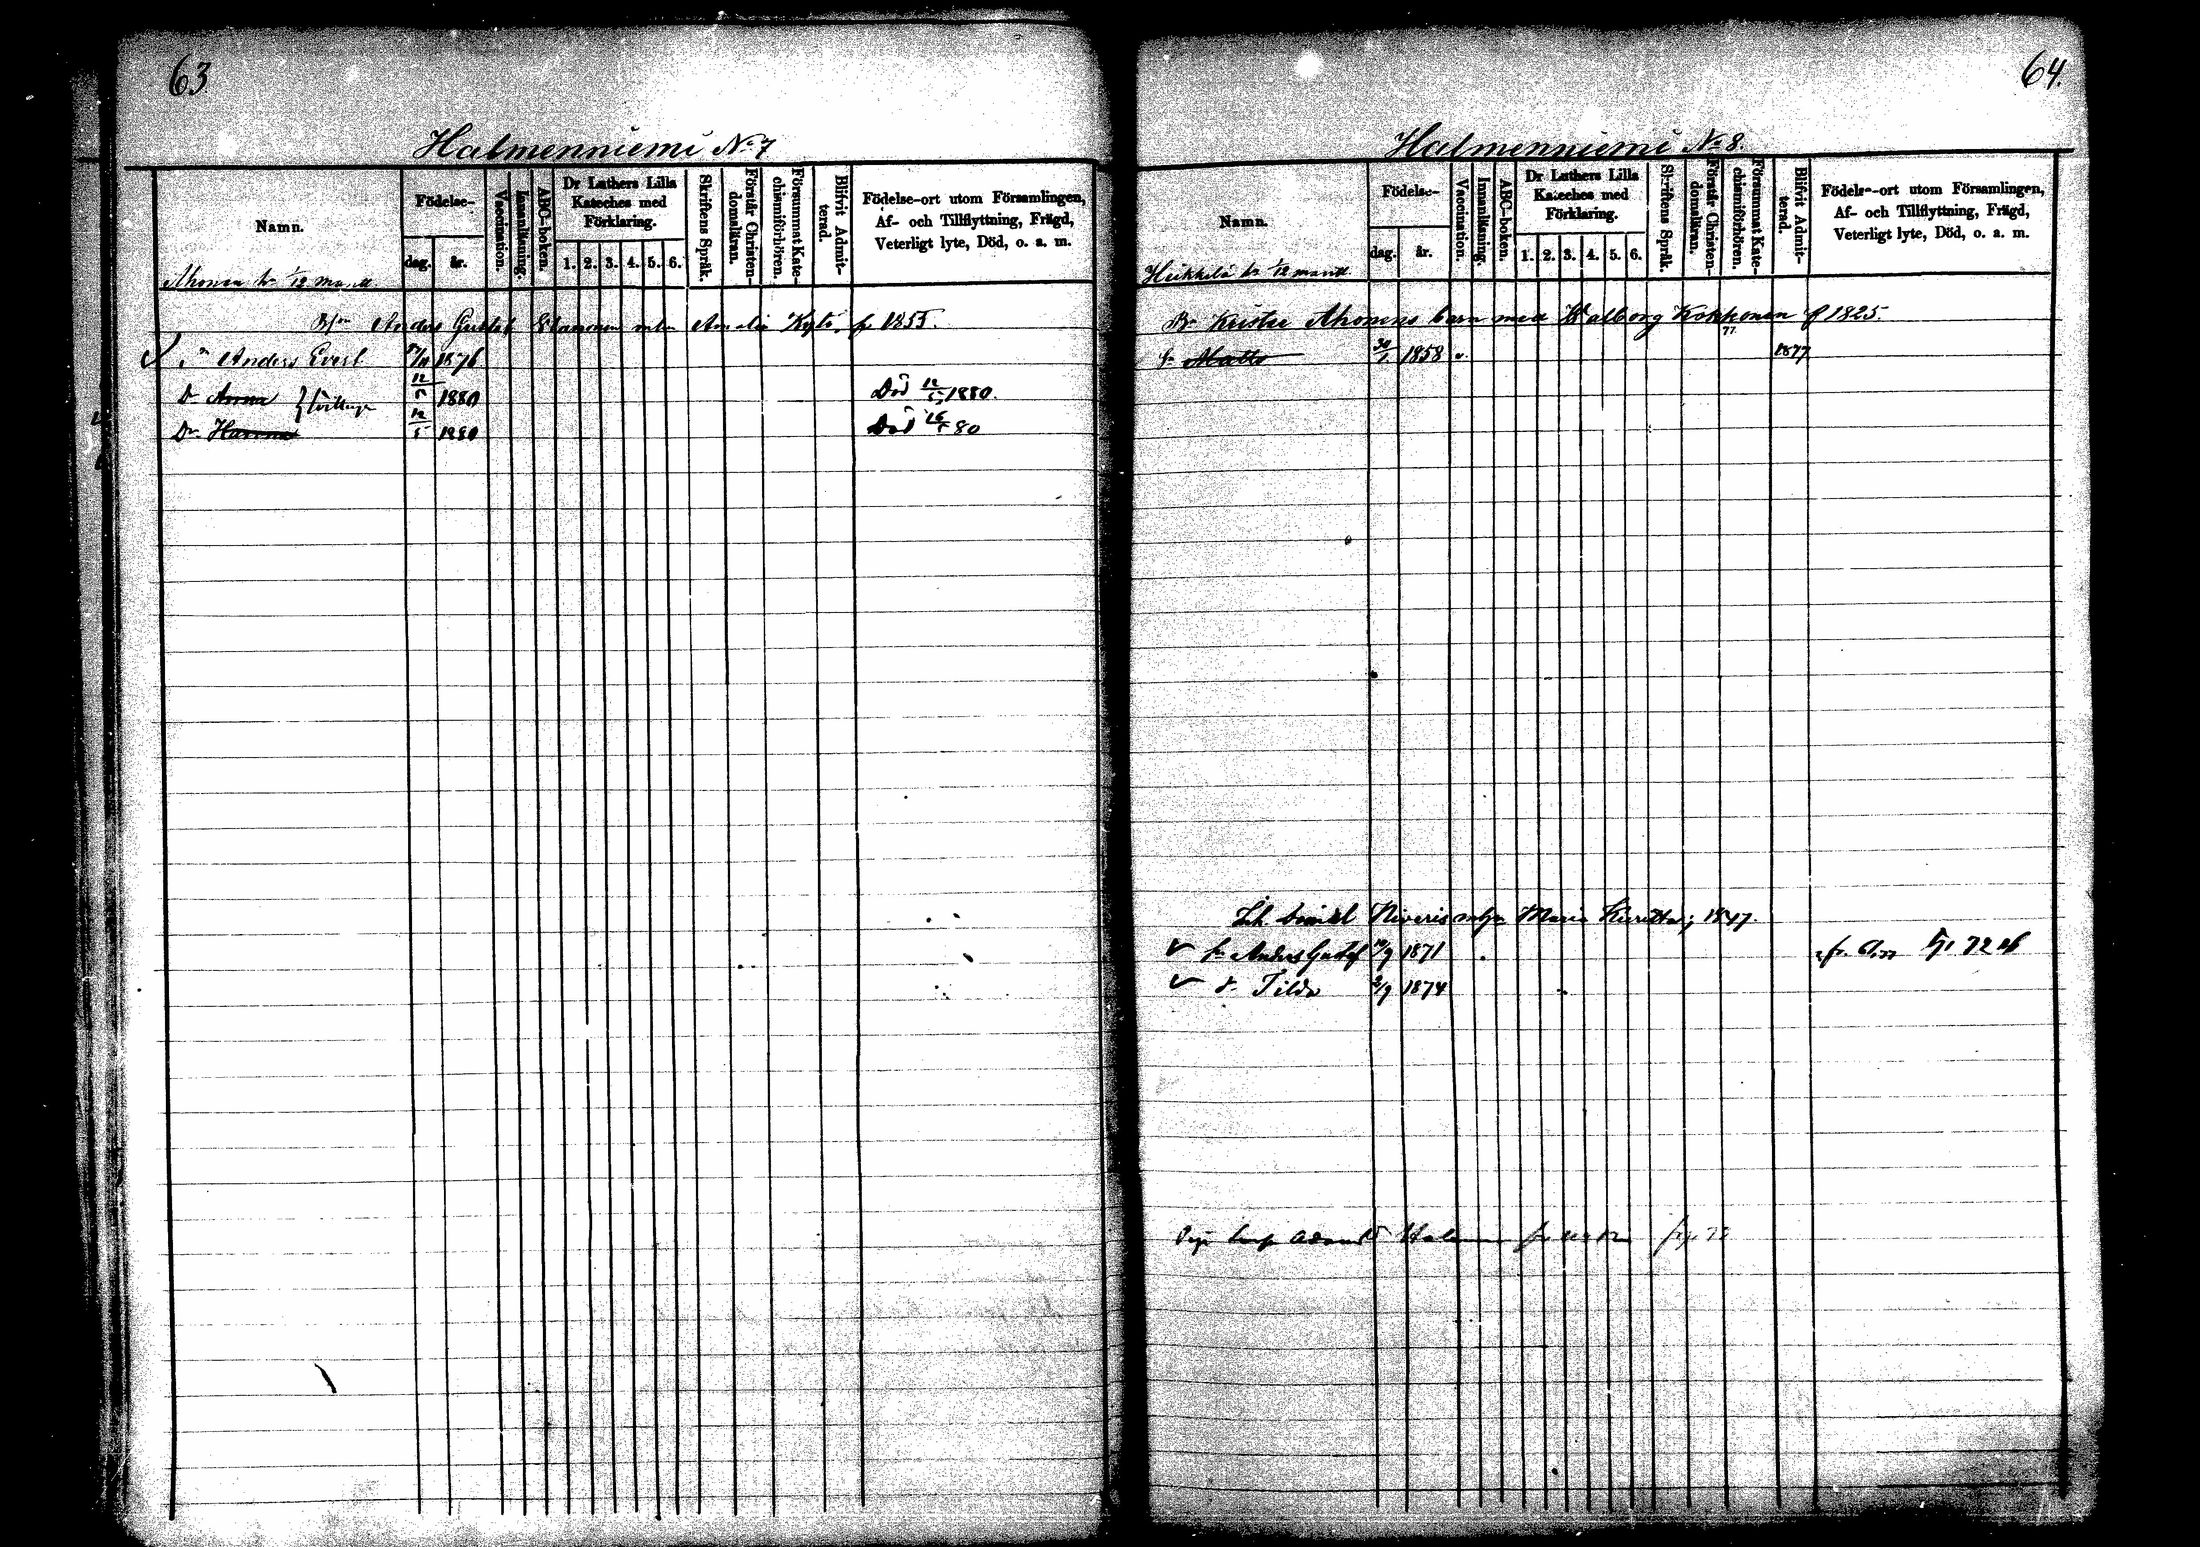 63
Halmenniemi No 7
Namn.
Födelse-
dag.
år.
Vaccination.
Innanläsning.
ABC-boken.
Dr Luthers Lilla Kateches med Förklaring.
1. 2. 3. 4. 5. 6.
Skriftens Språk.
Förstår Christen-domsläran.
Försummat Kate-chismiförhören.
Blifvit Admit-terad.
Födelse-ort utom Församlingen,
Af- och Tillflyttning, Frägd,
Veterligt lyte, Död, o. a. m.
Ahonen hr 1/12 mantl
Anders Gustaf mhu Amalia Kytö, fr 1855.
Anders Evert 1876
Dr Anna 12/5 1880 Död 12/5 1880.
Dr Hanna 12/5 1880 Död 80
64.
Halmenniemi No 8.
Namn.
Födelse-
dag.
år.
Vaccination.
Innanläsning.
ABC-boken.
Dr Luthers Lilla Kateches med Förklaring.
1. 2. 3. 4. 5. 6.
Skriftens Språk.
Förstår Christen-domsläran.
Försummat Kate-chismiförhören.
Blifvit Admit-terad.
Födelse-ort utom Församlingen,
Af- och Tillflyttning, Frägd,
Veterligt lyte, Död, o. a. m.
Heikkilä hr 1/12 mantl
Ahonens barn med Walborg Kokkonen f 1825.
77
Matts 30/1 1858 1877
Maria 1847.
Anders Gustaf 1871 72
Tilda 1874